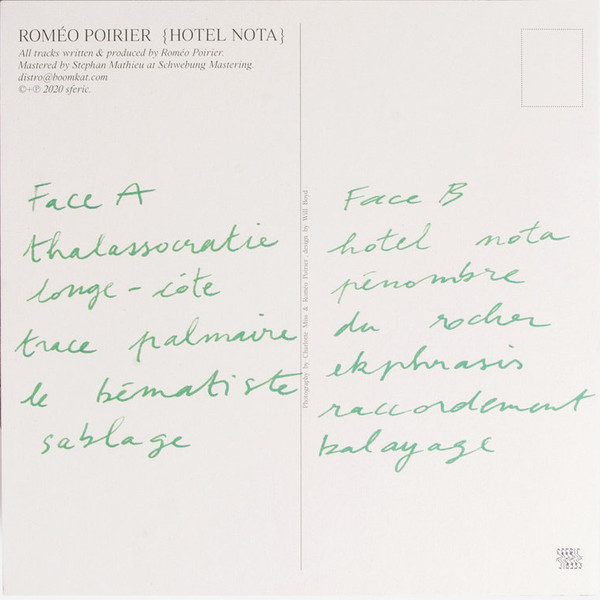 ROMÉO POIRIER {HOTEL NOTA}
All tracks written & produced by Roméo Poirier.
Mastered by Stephan Mathieu at Schwebung Mastering.
distro@boomkat.com
©+℗ 2020 sferic.
Face A
thalassocratie
longe-côte
trace palmaire
le bématiste
sablage
Photography by Charlotte Mim & Roméo Poirier, design by Will Boyd
Face B
hotel nota
pénombre
du rocher
ekphrasis
raccordement
balayage
SFERIC